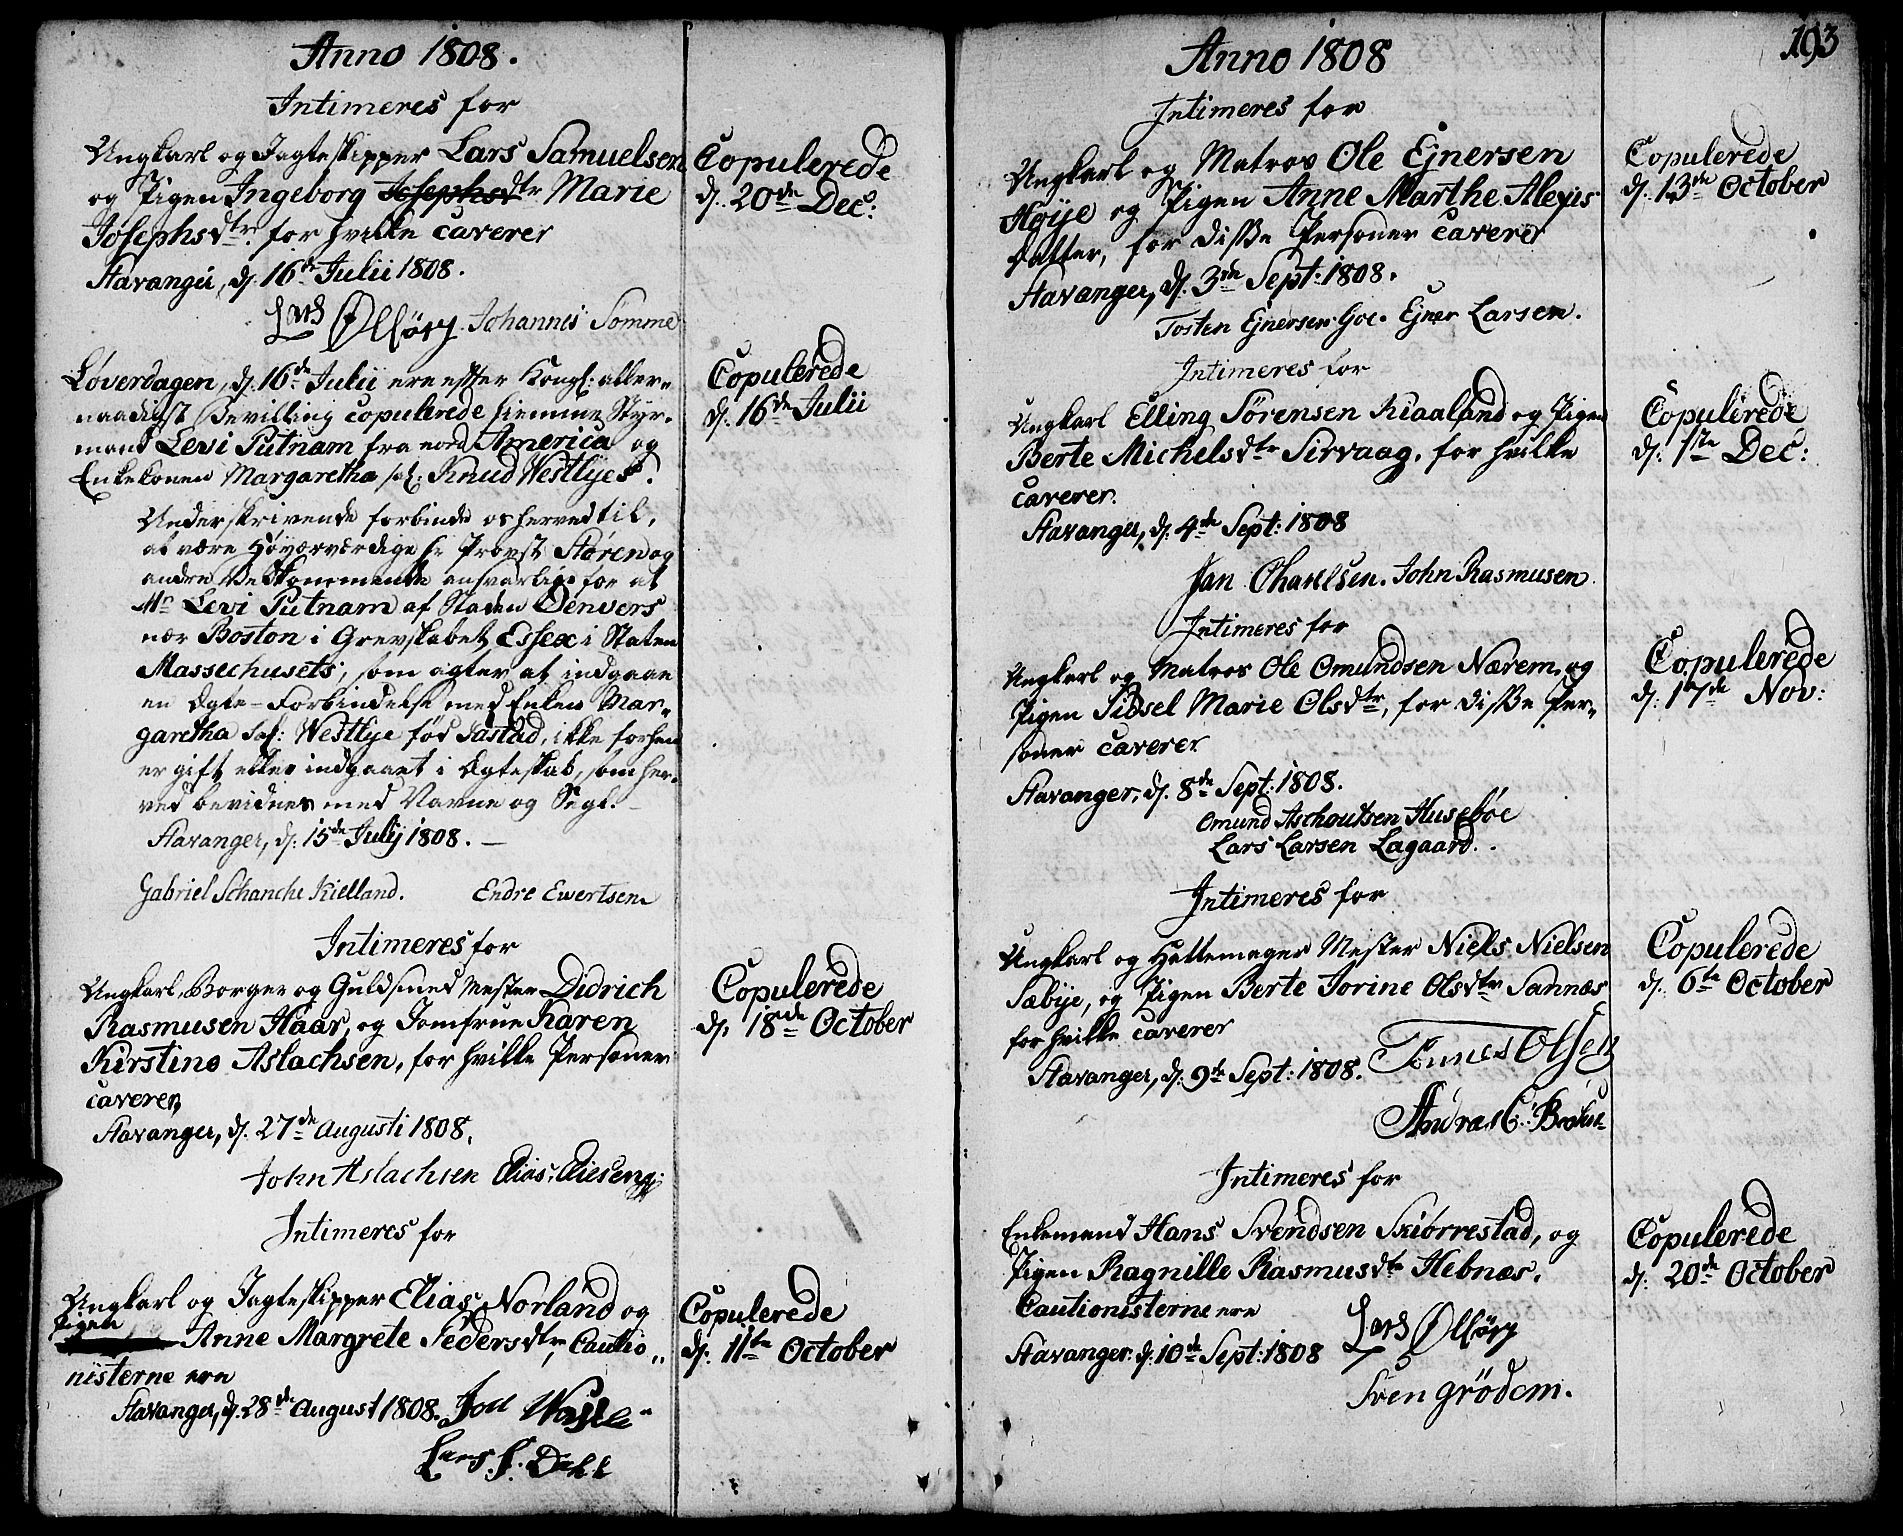 Anno 1808.
Intimeres for
Ungkarl og Jagteskipper Lars Samuelsen
og Pigen Ingeborg Josephsdtr Marie
Josephsdtr. for hvilke caverer
Stavanger, d. 16de Julii 1808.
Johannis Somme
Copulerede
d. 20de Dec:
Løverdagen, d. 16de Julii ere efter Kongl: aller-
naadigst Bevilling copulerede hiemme Styr-
mand Levi Putnam fra nord America og
Enkekonen Margaretha sal: Knud Westlyes.
Copulerede
d. 16de Julii
Underskrivende forbinde os herved til,
at være Høyærværdige hr Provst Støren og
andre Vedkommende ansvarlige for at
Mr Levi Putnam af Staden Denvers
nær Boston i Grevskabet Essex i Staten
Massechusets, som agter at indgaae
en Ægte-Forbindelse med Enken Mar-
garetha Sal: Westlye fød Jastad, ikke forhen
er gift eller indgaaet i Ægteskab, som her-
ved bevidnes med Navne og Segl. –
Stavanger, d. 15de Julij 1808. –
Gabriel Schanche Kielland. Endre Ewertsen
Intimeres for
Ungkarl, Borger og Guldsmed Mester Didrich
Rasmusen Haar, og Jomfrue Karen
Kirstine Aslachsen, for hvilke Personer
caverer,
Stavanger, d. 27de Augusti 1808.
John Aslachsen Elias Eliesen
Copulerede
d. 18de October
Intimeres for
Ungkarl og Jagteskipper Elias Norland og
Pigen
Anne Margrete Pedersdtr, Cautio-
nisterne ere
Stavanger, d. 28de August 1808.
Lars Dahl
Copulerede
d. 11te October
193
Anno 1808
Intimeres for
Ungkarl og Matros Ole Ejnersen
Høije og Pigen Anne Marthe Alexis
datter, for disse Personer caverer
Stavanger, d. 3de Sept: 1808.
Tosten Ejnersen Goe. Ejner Larsen.
Copulerede
d. 13de October
Intimeres for
Ungkarl Elling Sörensen Riaaland og Pigen
Berte Michelsdtr Sirvaag, for hvilke
caverer.
Stavanger, d. 4de Sept: 1808
Jan Charlsen. John Rasmusen
Copulerede
d. 1ste Dec:
Intimeres for
Ungkarl og Matros Ole Omundsen Nærem, og
Pigen Sidsel Marie Olsdtr, for disse Per-
soner caverer
Stavanger, d. 8de Sept: 1808.
Omund Aschoutsen Husebøe
Lars Larsen Lagaard.
Copulerede
d. 17de Nov:
Intimeres for
Ungkarl og Hattemager Mester Niels Nielsen
Sæbye, og Pigen Berte Jorine Olsdtr Sannæs
for hvilke caverer
Stavanger, d. 9de Sept: 1808. Tønnes Olsen
Copulerede
d. 6te October
Intimeres for
Enkemand Hans Svendsen Skiørrestad, og
Pigen Ragnille Rasmusdtr Hebnæs.
Cautionisterne ere
Stavanger d. 10de Sept: 1808
Sven Grödem.
Copulerede
d. 20de October